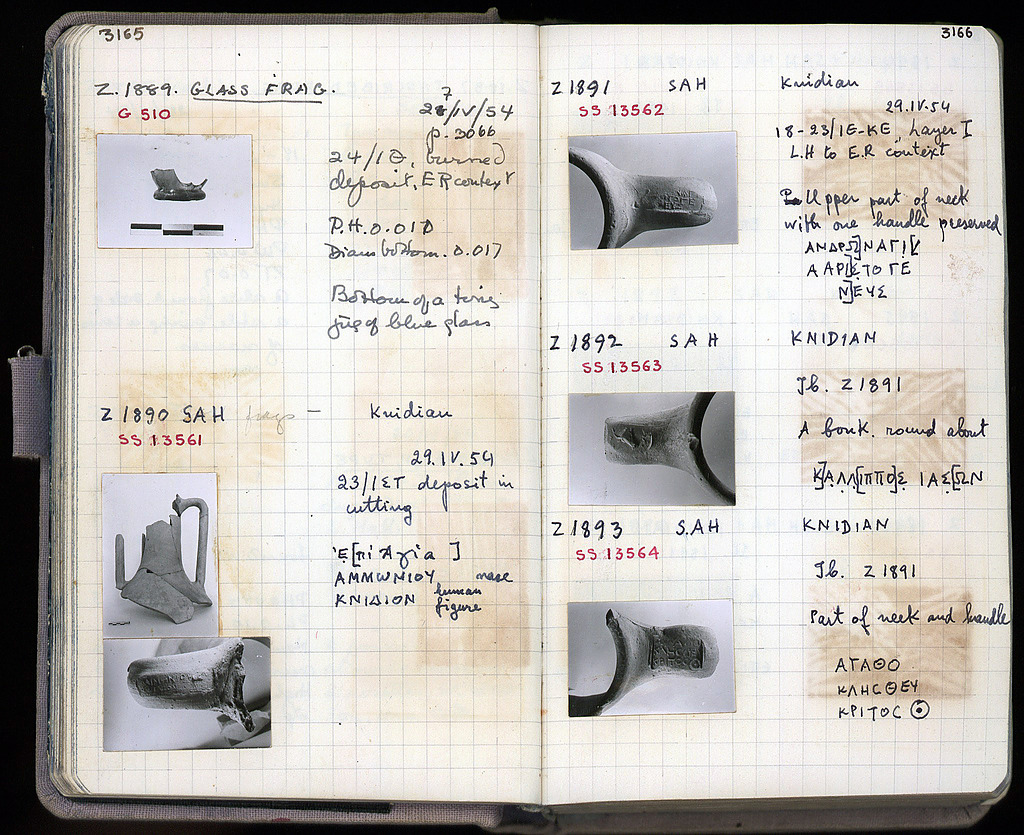 3165
Z.1889. GLASS FRAG.
G 510
27/IV/54
p. 3066
24/1Θ, burned
deposit, ER context
P.H. 0.010
Diam bottom. 0.017
Bottom of a tiny
jug of blue glass
Z 1890 SAH frags – Knidian
SS 13561
29.IV.54
23/1ΣΤ deposit in
cutting
Ἐ[πὶ Ἁγία ]
ΑΜΜΩΝΙΟΥ
ΚΝΙΔΙΟΝ human
figure
3166
Z 1891 SAH Knidian
SS 13562
29.IV.54
18-23/1E-KE, Layer I
L.H to E.R context
Upper part of neck
with one handle preserved
ΑΝΔΡΩ]ΝΑΓΙ[
ΑΑΡΙΣ]ΤΟΓΕ
Ν]ΕΥΣ
Z 1892 SAH KNIDIAN
SS 13563
Ib. Z 1891
A bouk. round about
Κ]ΑΛΛ[ΙΠΠΟ]Σ ΙΑΣ[ΩΝ
Z 1893 SAH KNIDIAN
SS 13564
Ib. Z 1891
Part of neck and handle
ΑΓΑΘΟ
ΚΛΗCΘΕΥ
ΚΡΙΤΟC